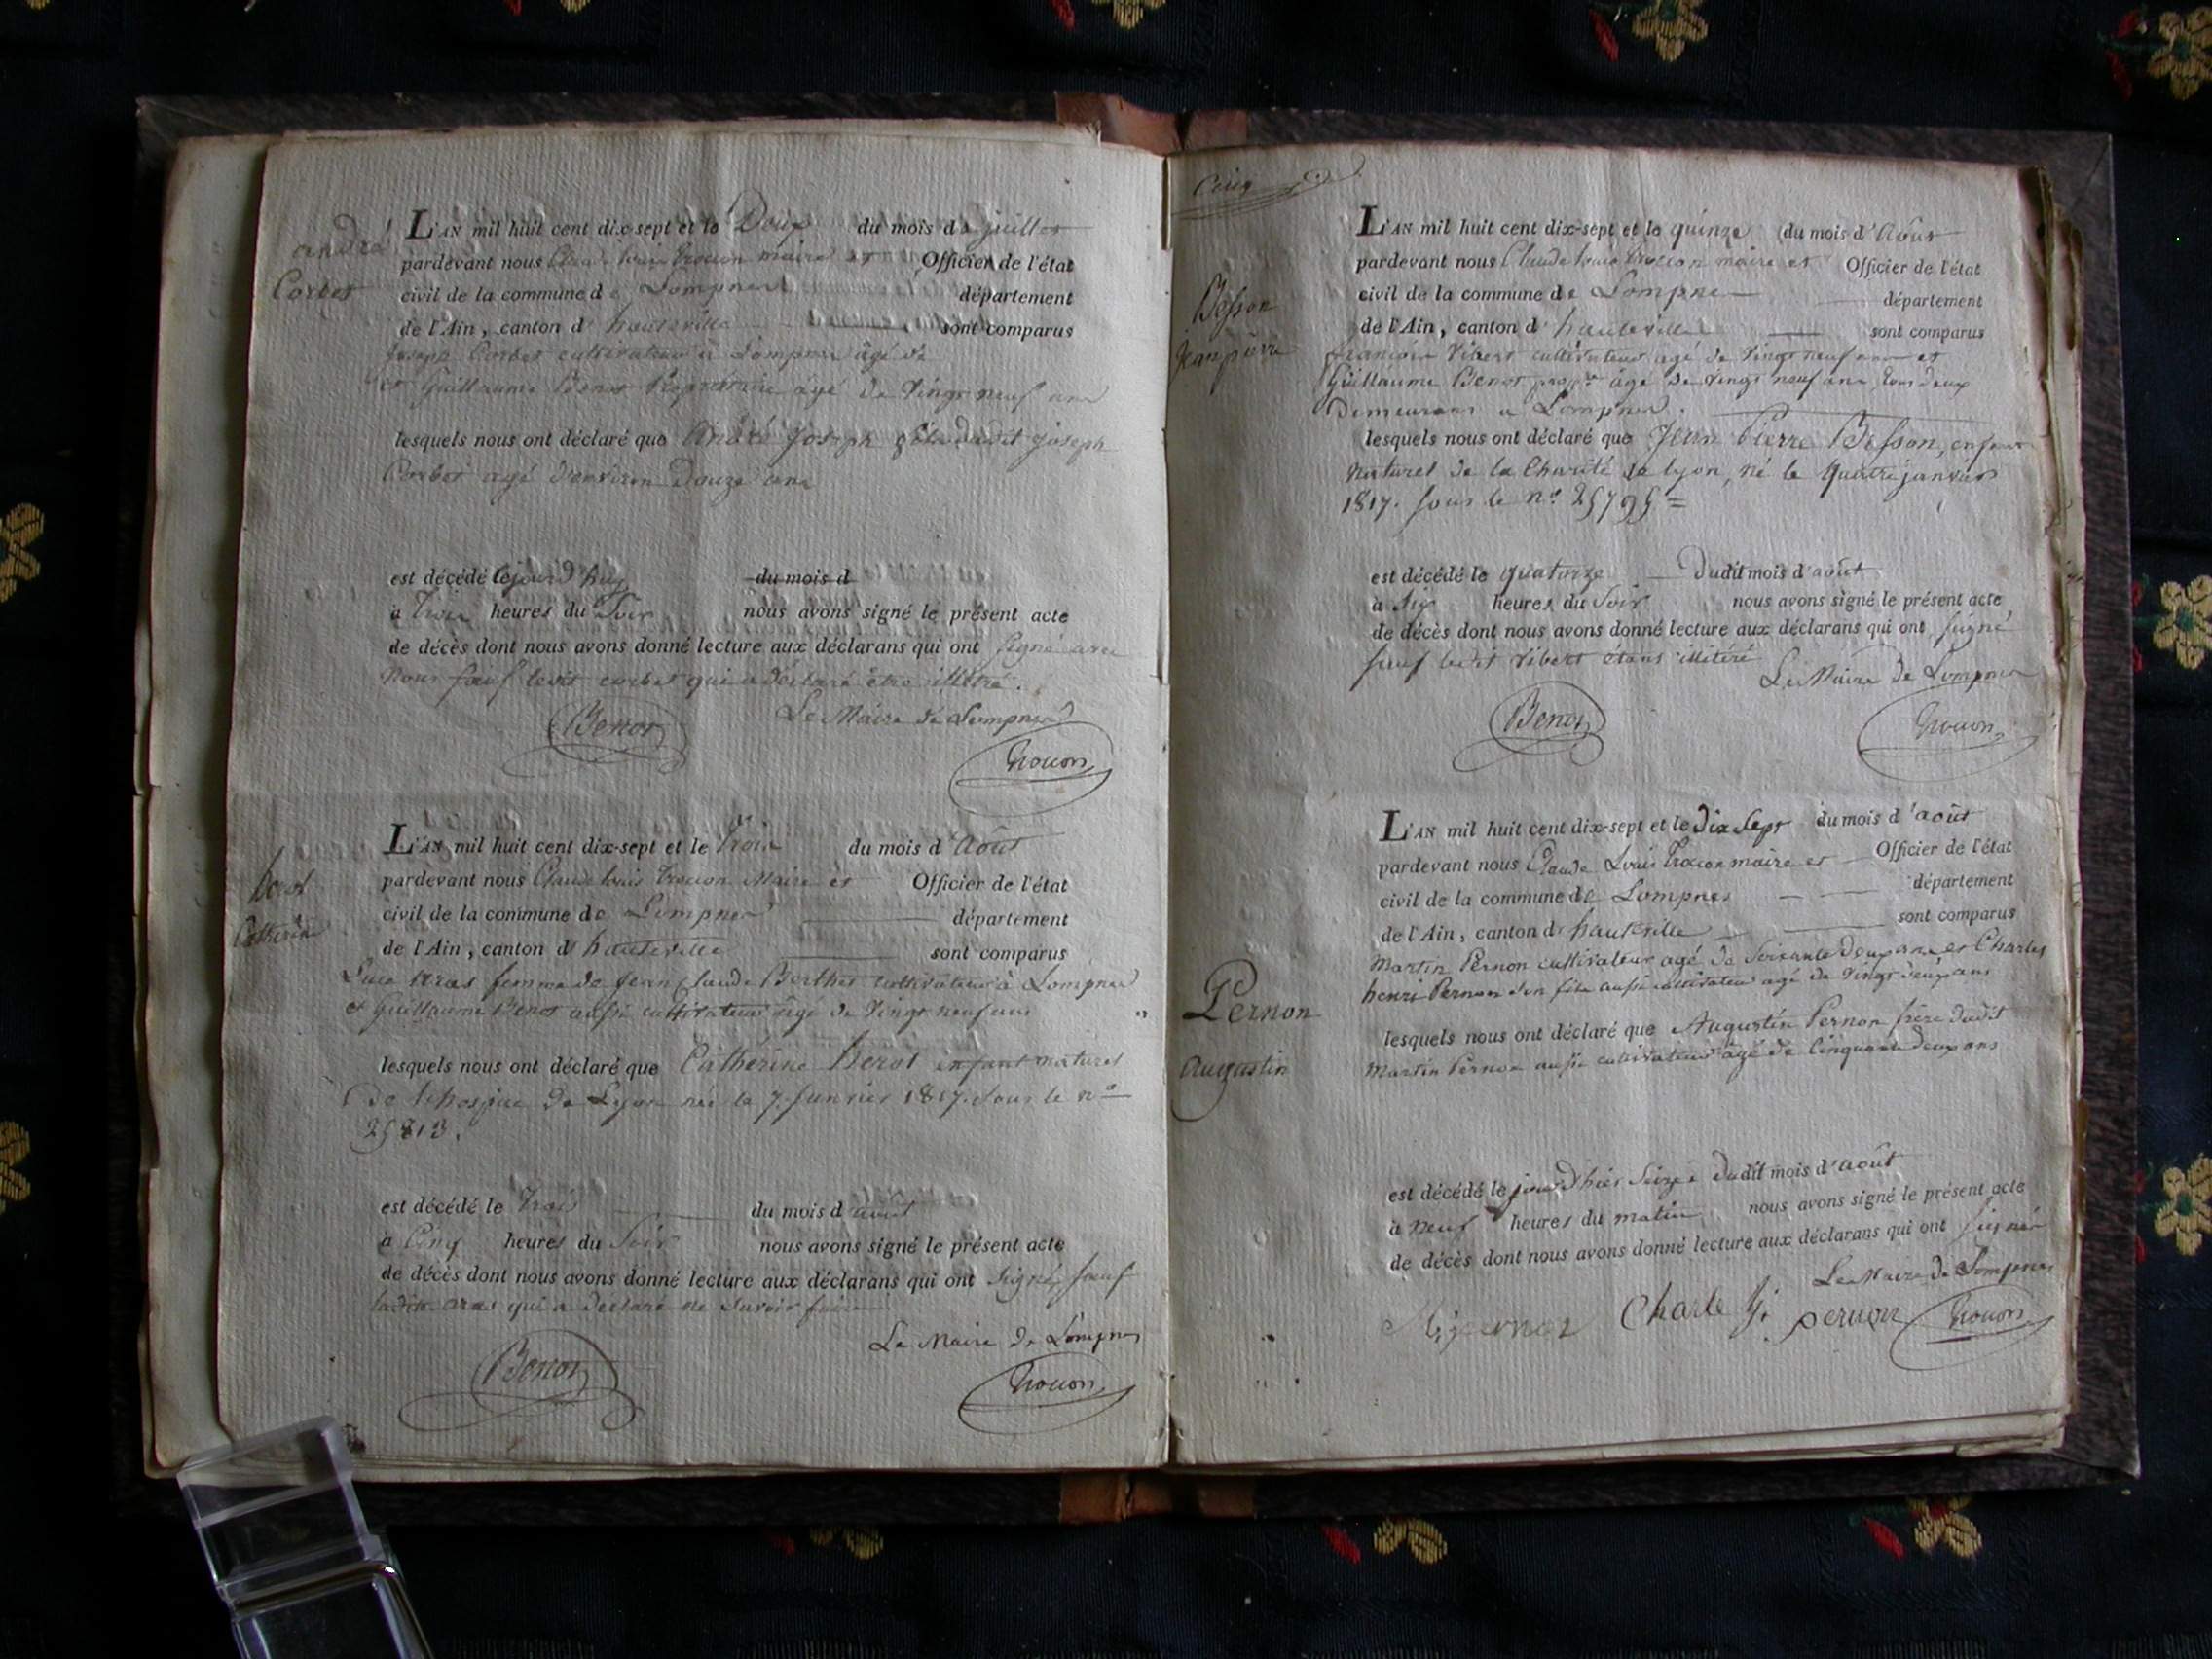 André
Corbet
L'AN mil huit cent dix-sept et le Deux du mois de juillet
pardevant nous Claude Louis Trocon maire et Officier de l'état
civil de la commune de Lompnes département
de l'Ain, canton d' hauteville sont comparus
Joseph Corbet cultivateur à Lompnes âgé de
et Guillaume Benot Propriétaire âgé de Vingt neuf ans
lesquels nous ont déclaré que André Joseph fils dudit Joseph
Corbet agé d'environ Douze ans
est décédé lejourd'huy du mois d
à Trois heures du Soir nous avons signé le présent acte
de décès dont nous avons donné lecture aux déclarans qui ont signé avec
Nous sauf ledit corbet qui a déclaré être illitéré.
Le Maire de Lompnes
Benot
Trocon
berot
Catherine
L'AN mil huit cent dix-sept et le Trois du mois d'Août
pardevant nous Claude Louis Trocon Maire et Officier de l'état
civil de la commune de Lompnes département
de l'Ain, canton d' hauteville sont comparus
femme de Jean Claude Berthet cultivateur à Lompnes
et Guillaume Benot aussi cultivateur âgé de Vingt neuf ans
lesquels nous ont déclaré que Catherine Berot enfant naturel
De l'hospice de Lyon née le 7. Janvier 1817. sous le n.o
25813.
est décédé le Trois du mois d août
à Cinq heures du Soir nous avons signé le présent acte
de décès dont nous avons donné lecture aux déclarans qui ont signé, sauf
ladite qui a déclaré ne savoir faire
Le Maire de Lompnes
Benot
Trocon
Cinq
Besson
Jean pierre
L'AN mil huit cent dix-sept et le quinze du mois d'Août
pardevant nous Claude Louis Trocon maire et Officier de l'état
civil de la commune de Lompnes département
de l'Ain, canton d' hauteville sont comparus
françois Vibert cultivateur agé de Vingt neuf ans et
Guillaume Benot prop.re âgé de Vingt neuf ans, tous deux
Demeurans a Lompnes.
lesquels nous ont déclaré que Jean Pierre Besson, enfant
Naturel de la Charité de Lyon, né le quatre janvier
1817. sous le n.o 25795 =
est décédé le quatorze Dudit mois d'août
à Six heures du Soir nous avons signé le présent acte
de décès dont nous avons donné lecture aux déclarans qui ont signé
sauf ledit Vibert étant illitéré
Le Maire de Lompnes
Benot
Trocon
Pernon
Augustin
L'AN mil huit cent dix-sept et le Dix Sept du mois d'août
pardevant nous Claude Louis Trocon maire et Officier de l'état
civil de la commune de Lompnes département
de l'Ain, canton d' hauteville sont comparus
Martin Pernon cultivateur agé de Soixante Deux ans et Charles
henri Pernon son fils aussi cultivateur agé de Vingt deux ans
lesquels nous ont déclaré que Augustin Pernon frère dudit
Martin Pernon aussi cultivateur âgé de Cinquante deux ans
est décédé le jourd'hier Seize dudit mois d'août
à Neuf heures du matin nous avons signé le présent acte
de décès dont nous avons donné lecture aux déclarans qui ont signé
Le Maire de Lompnes
M, pernon Charle h. pernon Trocon